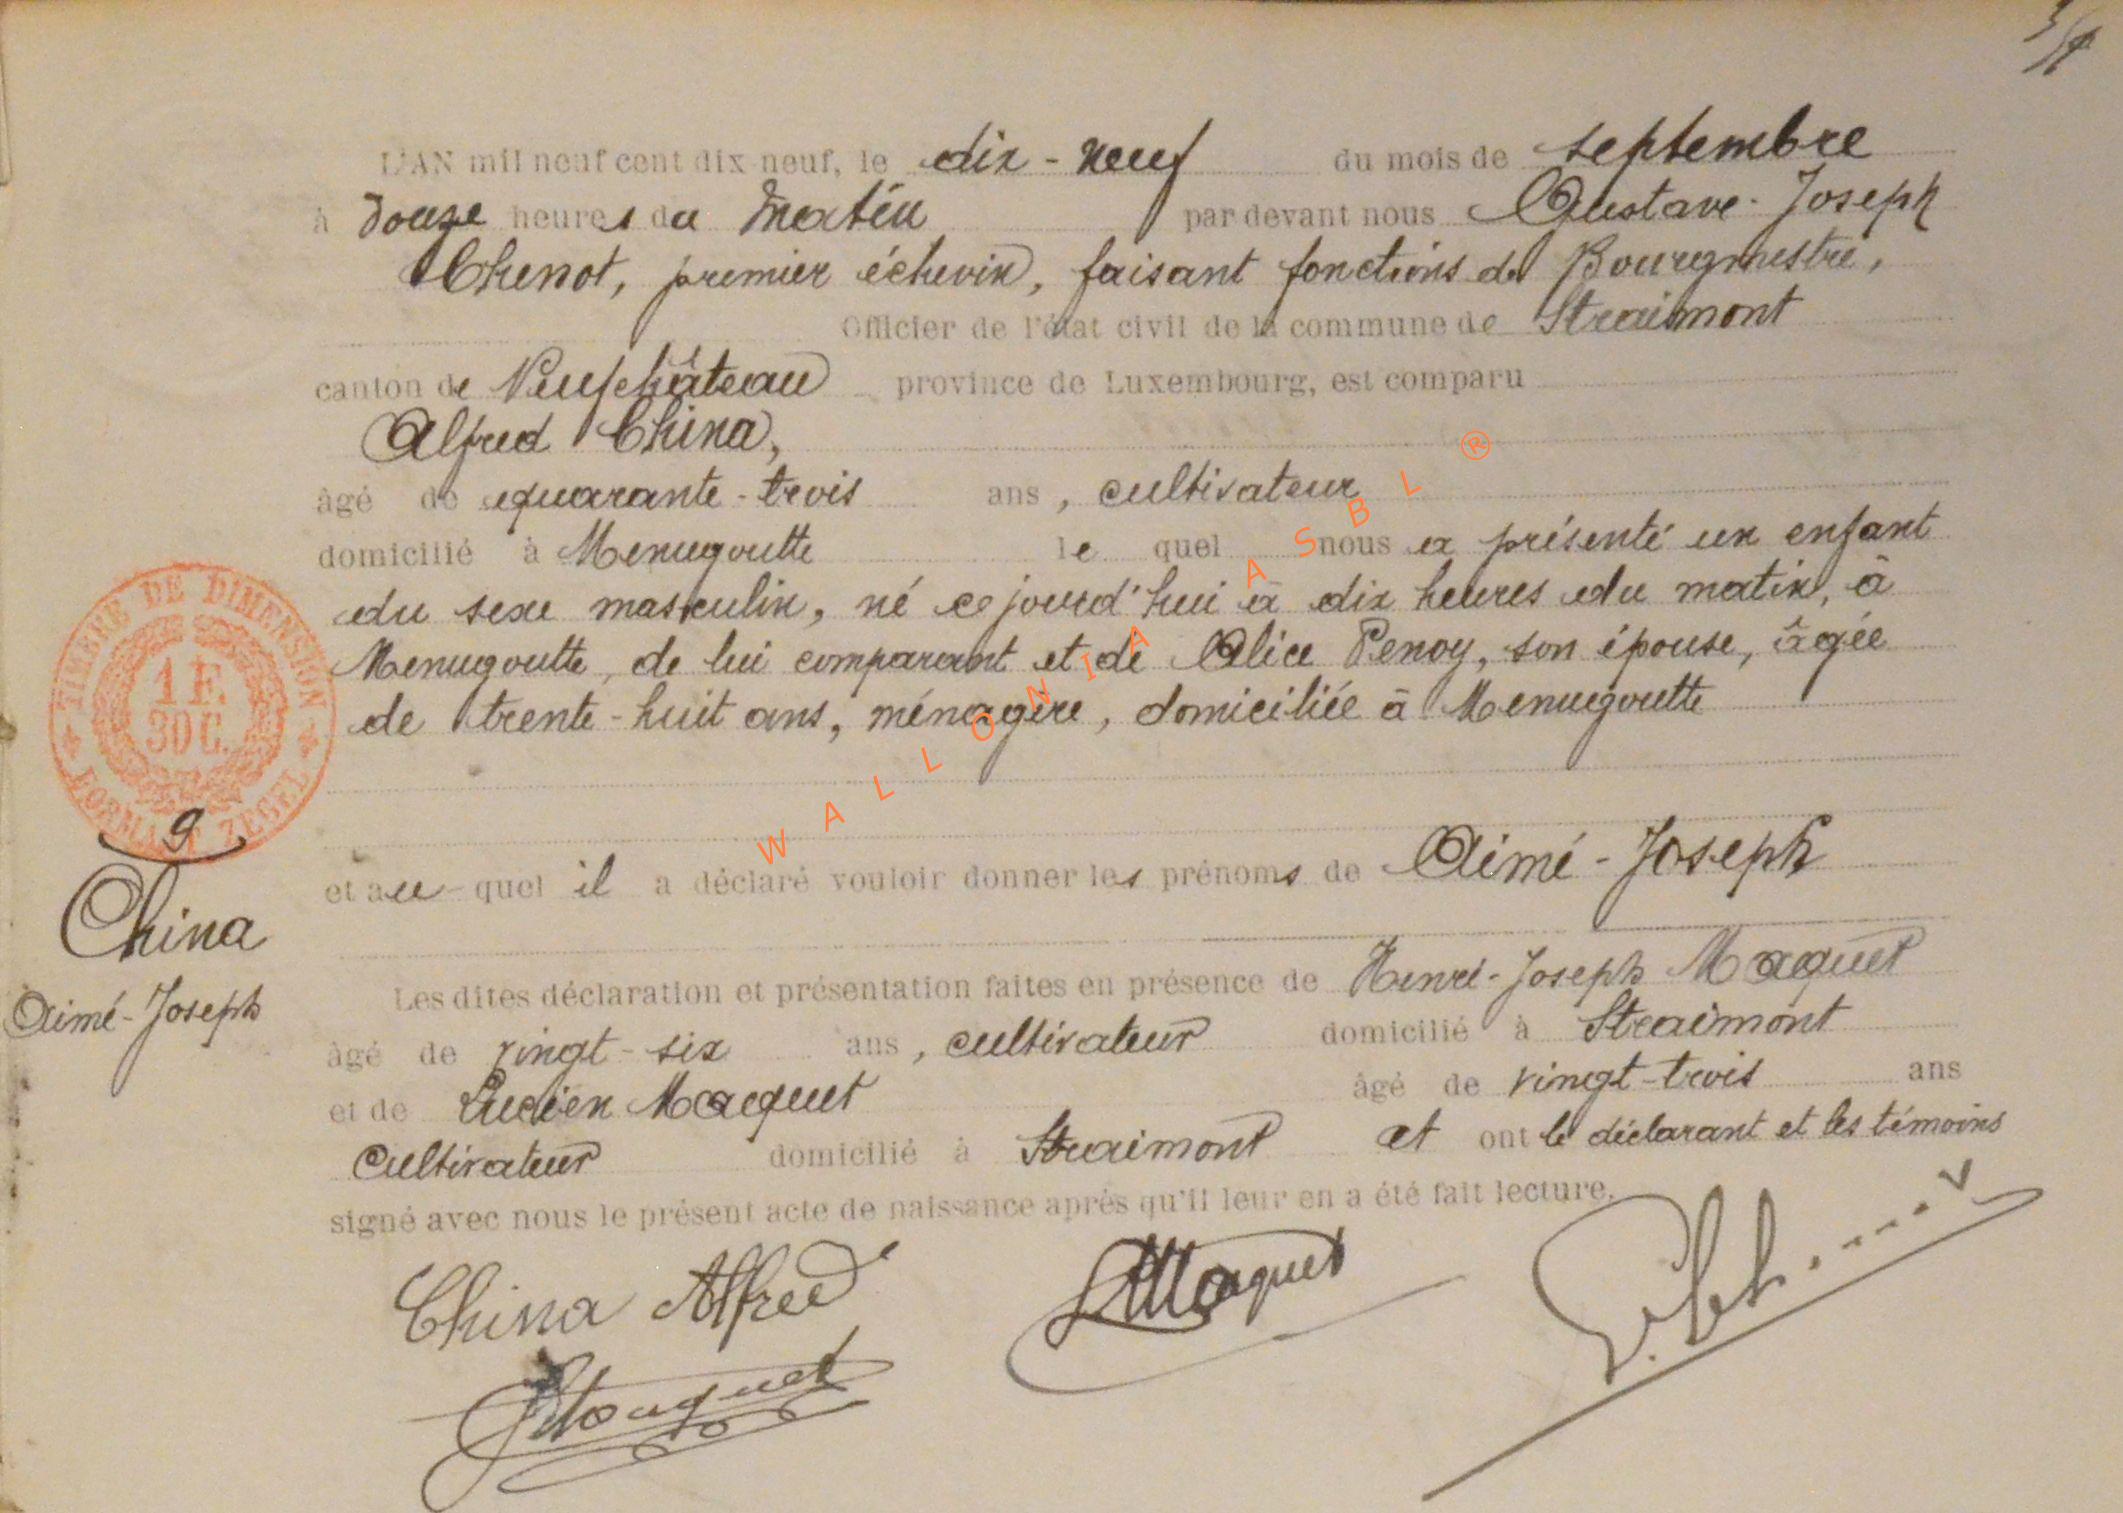 L'AN mil neuf cent dix neuf, le dix-neuf du mois de septembre
à douze heures du matin par devant nous Gustave-Joseph
Chenot, premier échevin, faisant fonctions de Bourgmestre,
Officier de l'état civil de la commune de Straimont
canton de Neufchâteau province de Luxembourg, est comparu
Alfred China,
âgé de quarante-trois ans, cultivateur
domicilié à Menugoutte le quel nous a présenté un enfant
du sexe masculin, né cejourd'hui à dix heures du matin, à
Menugoutte, de lui comparant et de Alice Penoy, son épouse, âgée
de trente-huit ans, ménagère, domiciliée à Menugoutte
et au quel il a déclaré vouloir donner les prénoms de Aimé-Joseph
Les dites déclaration et présentation faites en présence de Henri-Joseph Maquet
âgé de vingt-six ans, cultivateur domicilié à Straimont
et de Lucien Macquet âgé de vingt-trois ans
cultivateur domicilié à Straimont et ont le déclarant et les témoins
signé avec nous le présent acte de naissance après qu'il leur en a été fait lecture.
China Alfred
Maquet
TIMBRE DE DIMENSION
1 F.
30 C.
FORMAAT ZEGEL
9
China
Aimé-Joseph
WALLONIA ASBL ®